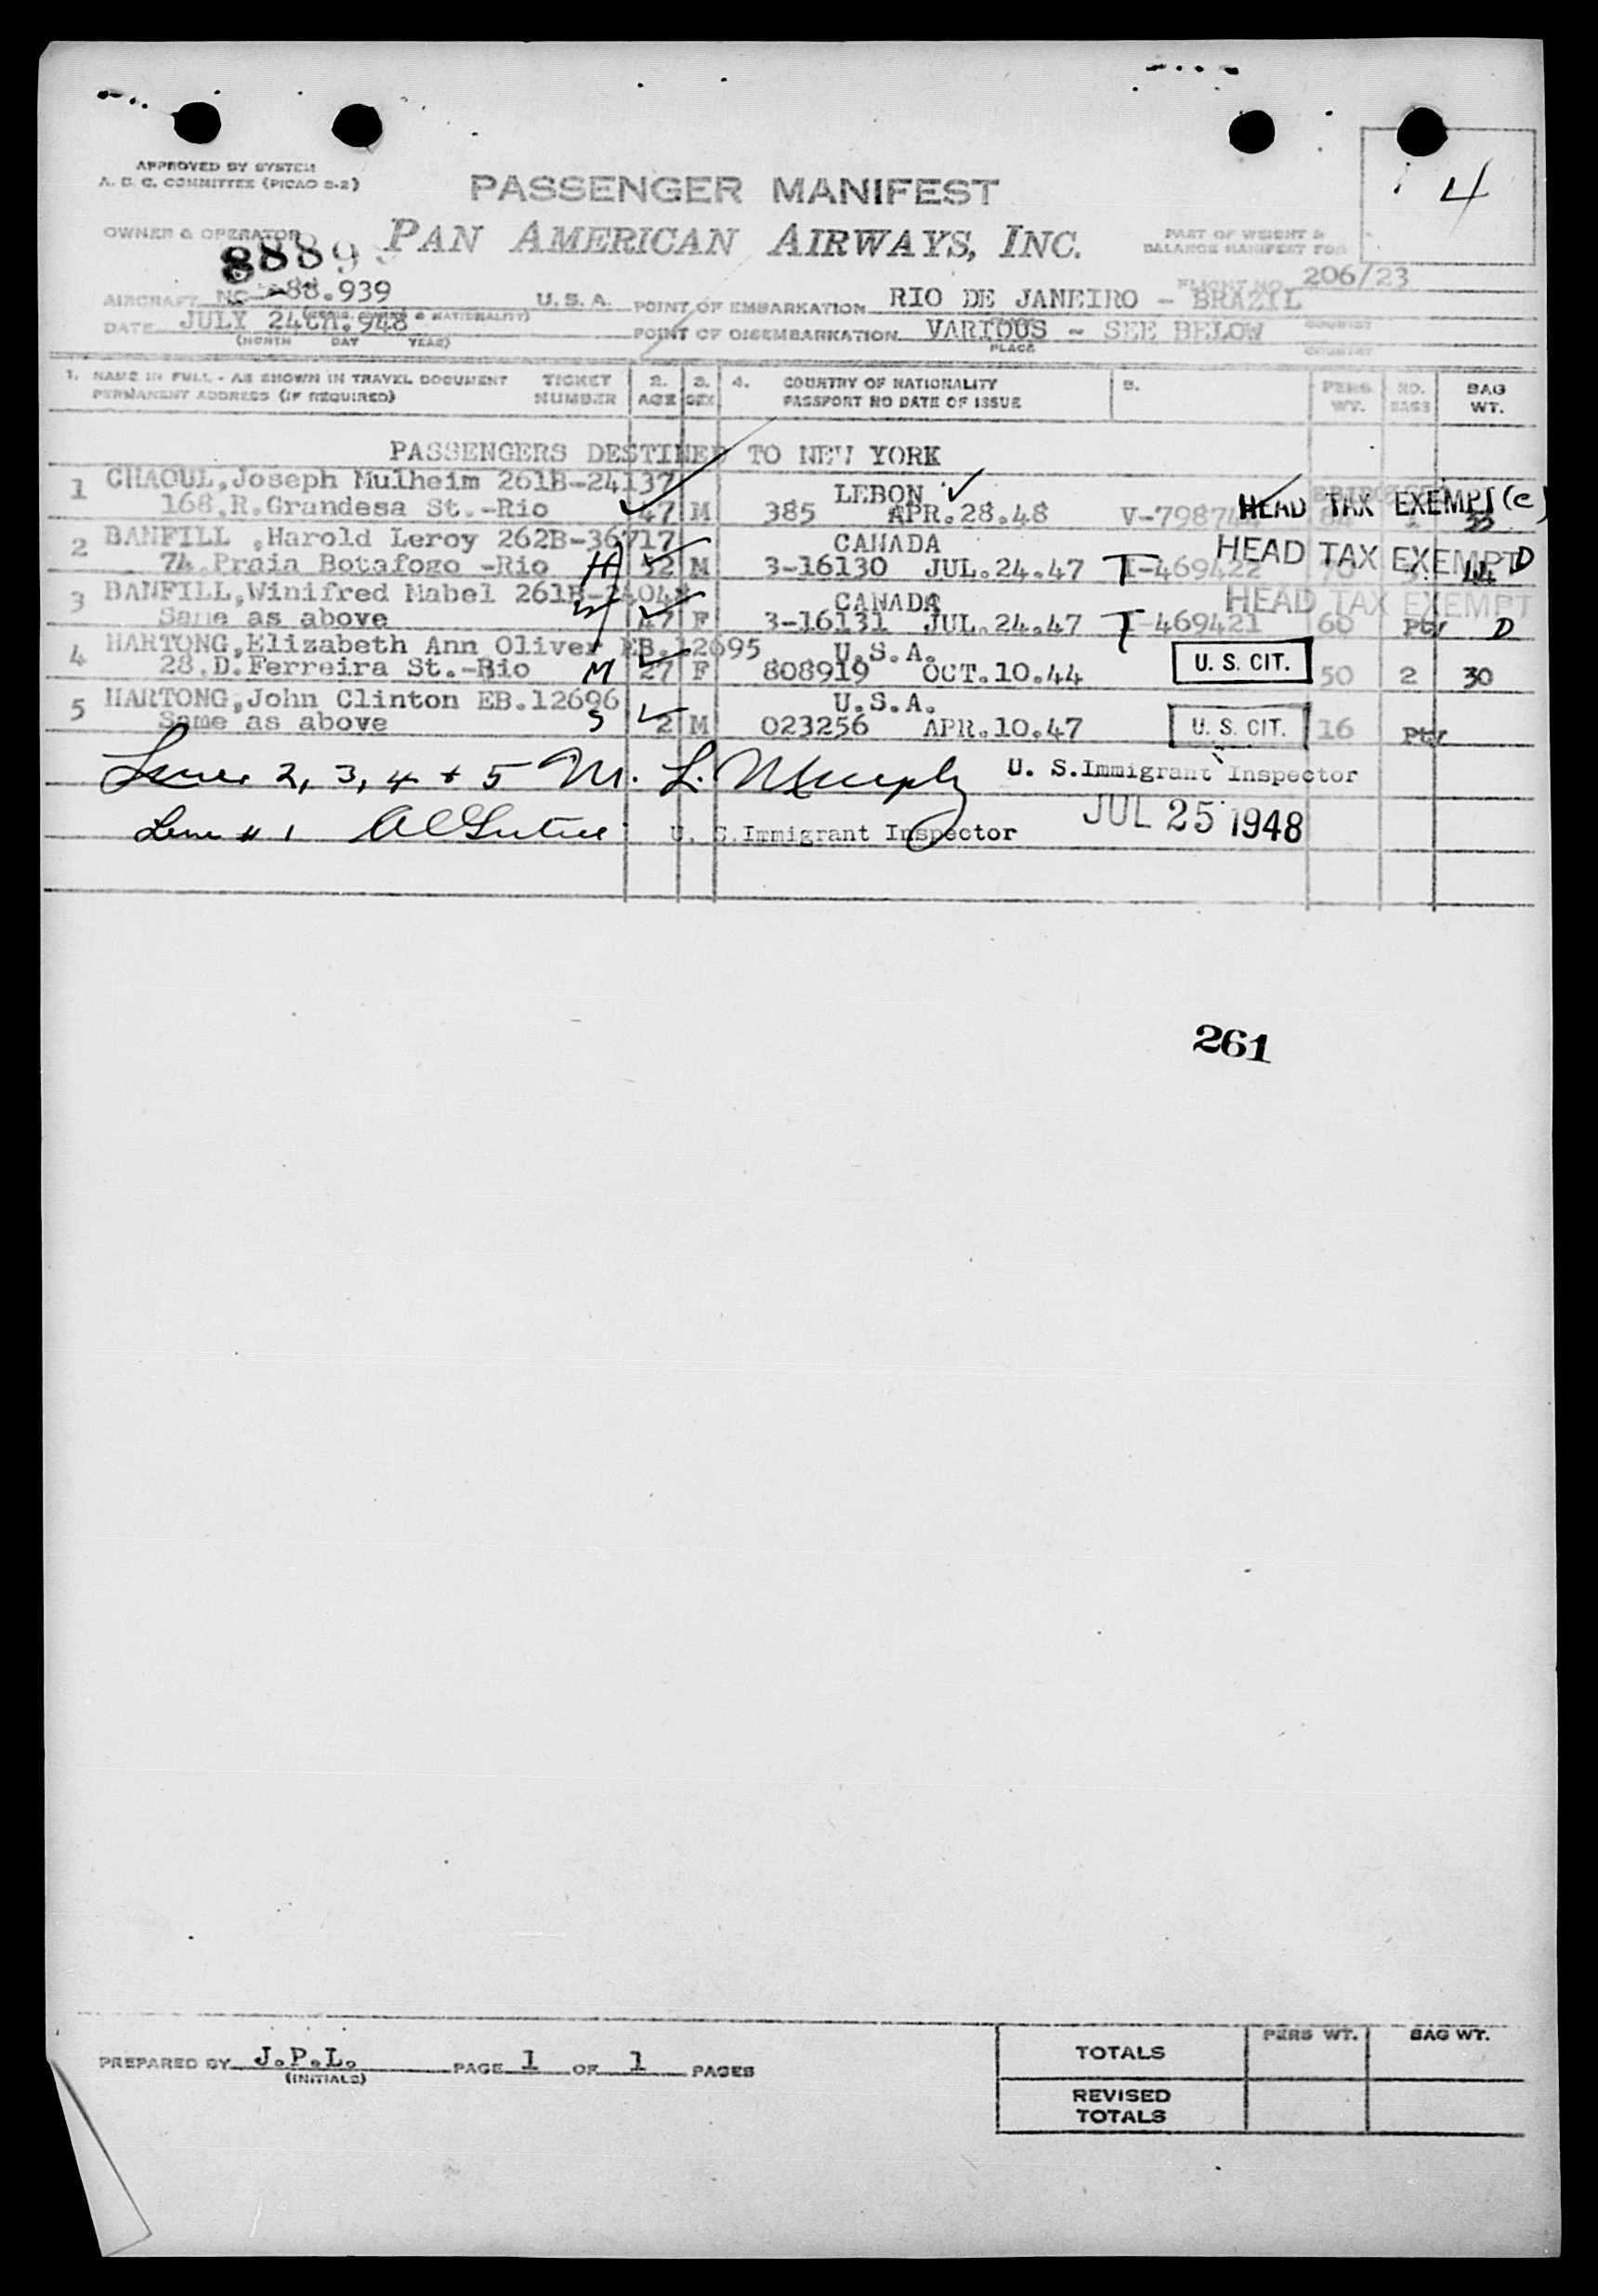 4
APPROVED BY SYSTEM
A. D. C. COMMITTEE (PICAO D-2)
PASSENGER MANIFEST
OWNER & OPERATOR
PAN AMERICAN AIRWAYS, INC.
PART OF WEIGHT &
BALANCE MANIFEST FOR
8889
FLIGHT NO. 206/23
AIRCRAFT NC -88.939 U. S. A. POINT OF EMBARKATION RIO DE JANEIRO - BRAZIL
DATE JULY 24th.948 POINT OF DISEMBARKATION VARIOUS - SEE BELOW
(MONTH DAY YEAR) PLACE COUNTRY
1. NAME IN FULL - AS SHOWN IN TRAVEL DOCUMENT TICKET 2. 3. 4. COUNTRY OF NATIONALITY 5. PERS. NO. BAG
PERMANENT ADDRESS (IF REQUIRED) NUMBER AGE SEX PASSPORT NO DATE OF ISSUE WT. BAGS WT.
PASSENGERS DESTINED TO NEW YORK
1 CHAOUL,Joseph Mulheim 261B-24137 LEBON
168,R.Grandesa St.-Rio 47 M 385 APR.28.48 V-798744 HEAD TAX EXEMPT (e) 84 1 22
2 BANFILL ,Harold Leroy 262B-36717 CANADA HEAD TAX EXEMPT D
74,Praia Botafogo -Rio H 52 M 3-16130 JUL.24.47 T I-469422 70 44
3 BANFILL,Winifred Mabel 261B-24048 CANADA HEAD TAX EXEMPT
Same as above W 47 F 3-16131 JUL.24.47 T I-469421 60 Ptr D
4 HARTONG,Elizabeth Ann Oliver EB.12695 U.S.A. U. S. CIT.
28.D.Ferreira St.-Rio M 27 F 808919 OCT.10.44 50 2 30
5 HARTONG,John Clinton EB.12696 U.S.A.
Same as above S 2 M 023256 APR.10.47 U. S. CIT. 16 Ptr
Lines 2, 3, 4 + 5 M. L. Murphy U. S.Immigrant Inspector
Line # 1 U. S.Immigrant Inspector JUL 25 1948
261
PREPARED BY J.P.L. PAGE 1 OF 1 PAGES
(INITIALS)
PERS WT. BAG WT.
TOTALS
REVISED
TOTALS